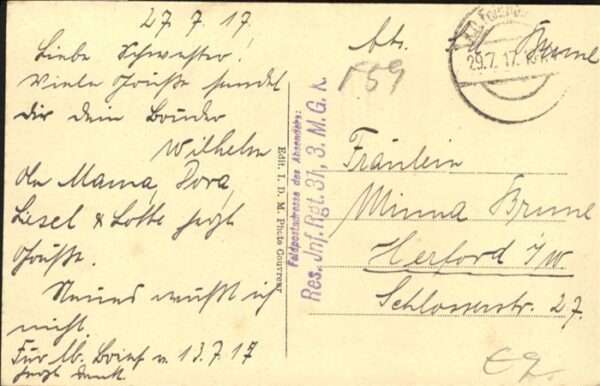 27.7.17.
Liebe Schwester!
Viele Grüße sendet
dir dein Bruder
Wilhelm
An Mama, Dora,
Liesel & Lotte herzl
Grüße.
Neues weiß ich
nicht.
Für lb. Brief v. 13.7.17
herzl Dank.
Edit. I. D. M. Photo Gouvreur
Feldpostadresse des Absenders:
Res. Inf. Rgt. 31, 3. M. G. K.
Abs. Brune
29.7.17.
F59
Fräulein
Minna Brune
Herford i/W.
Schlosserstr. 27.